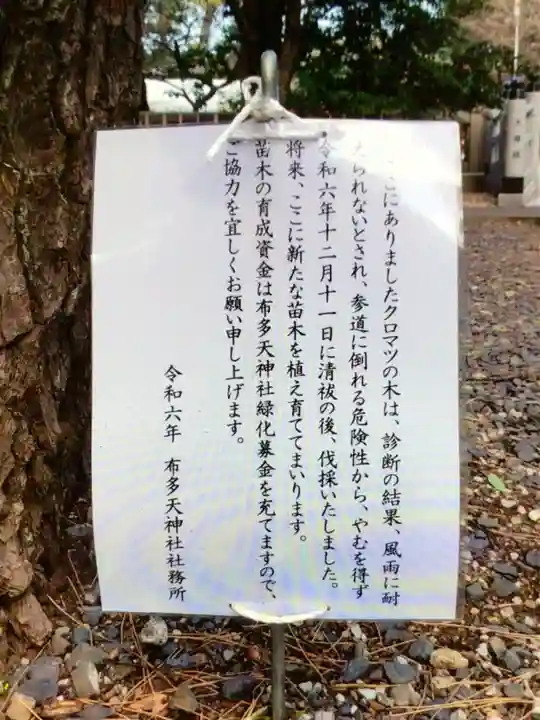 ここにありましたクロマツの木は、診断の結果、風雨に耐
えられないとされ、参道に倒れる危険性から、やむを得ず
令和六年十二月十一日に清祓の後、伐採いたしました。
将来、ここに新たな苗木を植え育ててまいります。
苗木の育成資金は布多天神社緑化募金を充てますので、
ご協力を宜しくお願い申し上げます。
令和六年 布多天神社社務所